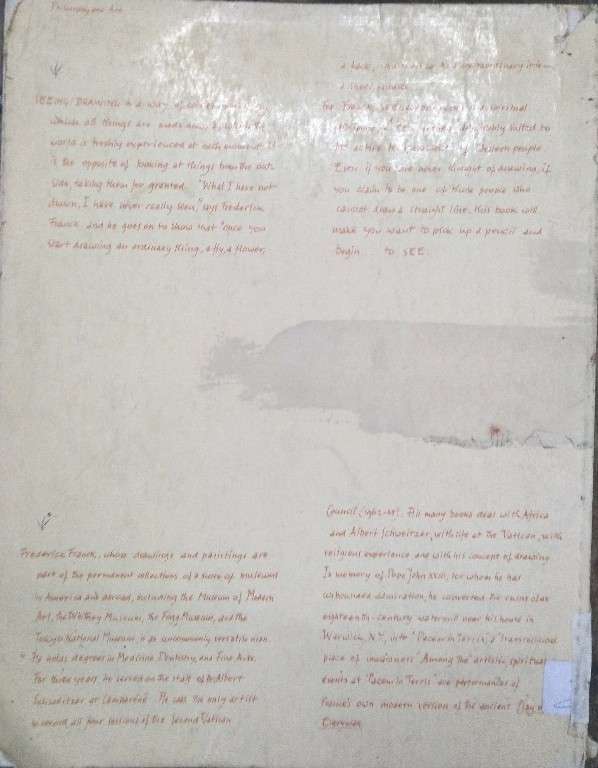 Philosophy and Art
SEEING/DRAWING is a way of contemplation by
which all things are made new, by which the
world is freshly experienced at each moment. It
is the opposite of looking at things from the out-
side, taking them for granted. "What I have not
drawn, I have never really seen," says Frederick
Franck, and he goes on to show that "once you
start drawing an ordinary thing, a fly, a flower,
a face, extraordinary
sheer miracle
For Franck, spiritual
to
active Western people
Even if you have never thought of drawing, if
you claim to be one of those people who
cannot draw a straight line, this book will
make you want to pick up a pencil and
begin... to SEE.
Frederick Franck, whose drawings and paintings are
part of the permanent collections of a score of museums
in America and abroad, including the Museum of Modern
Art, the Whitney Museum, the Fogg Museum, and the
Tokyo National Museum, is an uncommonly versatile man.
He holds degrees in Medicine, Dentistry, and Fine Arts.
For three years he served on the staff of Dr Albert
Schweitzer at Lambaréné. He was the only artist
to record all four sessions of the Second Vatican
Council (1962-65). His many books deal with Africa
and Albert Schweitzer, with life at the Vatican, with
religious experience and with his concept of drawing.
In memory of Pope John XXIII, for whom he has
unbounded admiration, he converted the ruins of an
eighteenth-century watermill near his house in
Warwick, N.Y., into "Pacem in Terris," a "transreligious
place of inwardness." Among the artistic, spiritual
events at "Pacem in Terris" are performances of
Franck's own modern version of the ancient Play of
Everyman